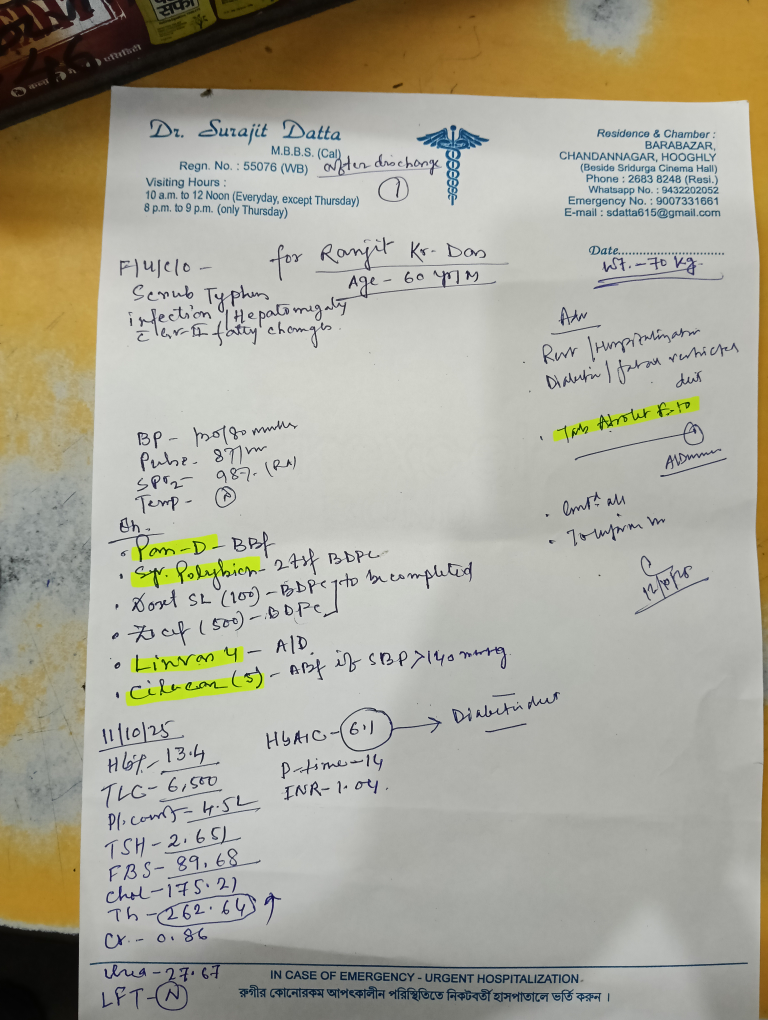 Dr. Surajit Datta
M.B.B.S. (Cal)
Regn. No. : 55076 (WB)
Visiting Hours :
10 a.m. to 12 Noon (Everyday, except Thursday)
8 p.m. to 9 p.m. (only Thursday)
after discharge
1
Residence & Chamber :
BARABAZAR,
CHANDANNAGAR, HOOGHLY
(Beside Sridurga Cinema Hall)
Phone : 2683 8248 (Resi.)
Whatsapp No. : 9432202052
Emergency No. : 9007331661
E-mail : sdatta615@gmail.com
Date
Wt. - 70 kg
for Ranjit Kr. Das
Age - 60 yr/M
F/U/C/O -
Scrub Typhus
infection / Hepatomegaly
c Gr-II fatty changes.
Adv
Rest / Hospitalization
Diabetic / restricted
diet
Tab
BP - 130/80 mmHg
Pulse - 87/m
SPO2 - 98% (RA)
Temp - N
Pan-D - BBF
Syr. Polybion - 2 tsf BDPC
Doxt SL (100) - BDPC
(500) - BDPC
to be completed
A/D
Cilacar (5) - ABF if SBP > 140 mmHg
11/10/25
Hb% - 13.4
TLC - 6,500
Pl. count - 4.5L
TSH - 2.651
FBS - 89.68
Chol - 175.21
262.64 ↑
Cr. - 0.86
Urea - 27.67
LFT - N
HbA1C - 6.1 → Diabetic diet
P-time - 14
INR - 1.04.
IN CASE OF EMERGENCY - URGENT HOSPITALIZATION
রুগীর কোনোরকম আপৎকালীন পরিস্থিতিতে নিকটবর্তী হাসপাতালে ভর্তি করুন ।